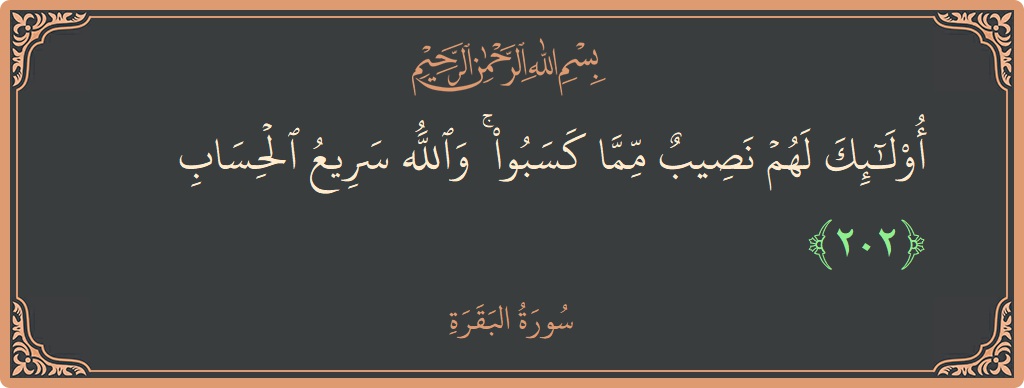 بِسْمِ اللَّهِ الرَّحْمَٰنِ الرَّحِيمِ
أُو۟لَـٰٓئِكَ لَهُمۡ نَصِيبٌ مِّمَّا كَسَبُوا۟ ۚ وَٱللَّهُ سَرِيعُ ٱلۡحِسَابِ
﴿٢٠٢﴾
سُورَةُ البَقَرَةِ